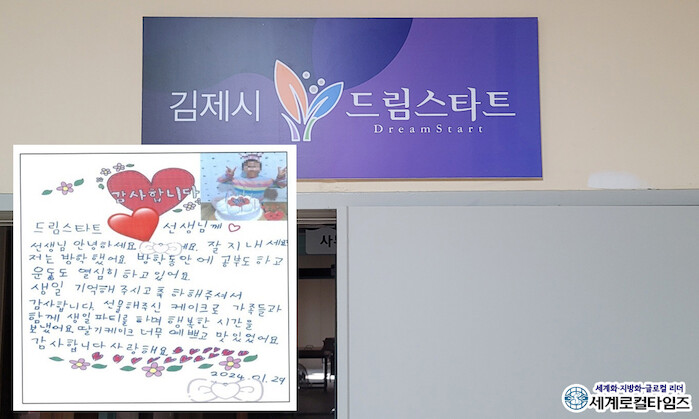 김제시
드림스타트
DreamStart
감사합니다
드림스타트
선생님께
선생님 안녕하세요. 세요. 잘 지내세요
저는 방학 했어요. 방학동안에 공부도 하고
운동도 열심히 하고 있어요.
생일 기억해 주시고 축하해주셔서
감사합니다. 선물해주신 케이크로 가족들과
함께 생일파티를 하며 행복한 시간을
보냈어요. 딸기케이크 너무 예쁘고 맛있었어요
감사합니다 사랑해요
2024.01.29
세계화·지방화=글로컬 리더
세계로컬타임즈